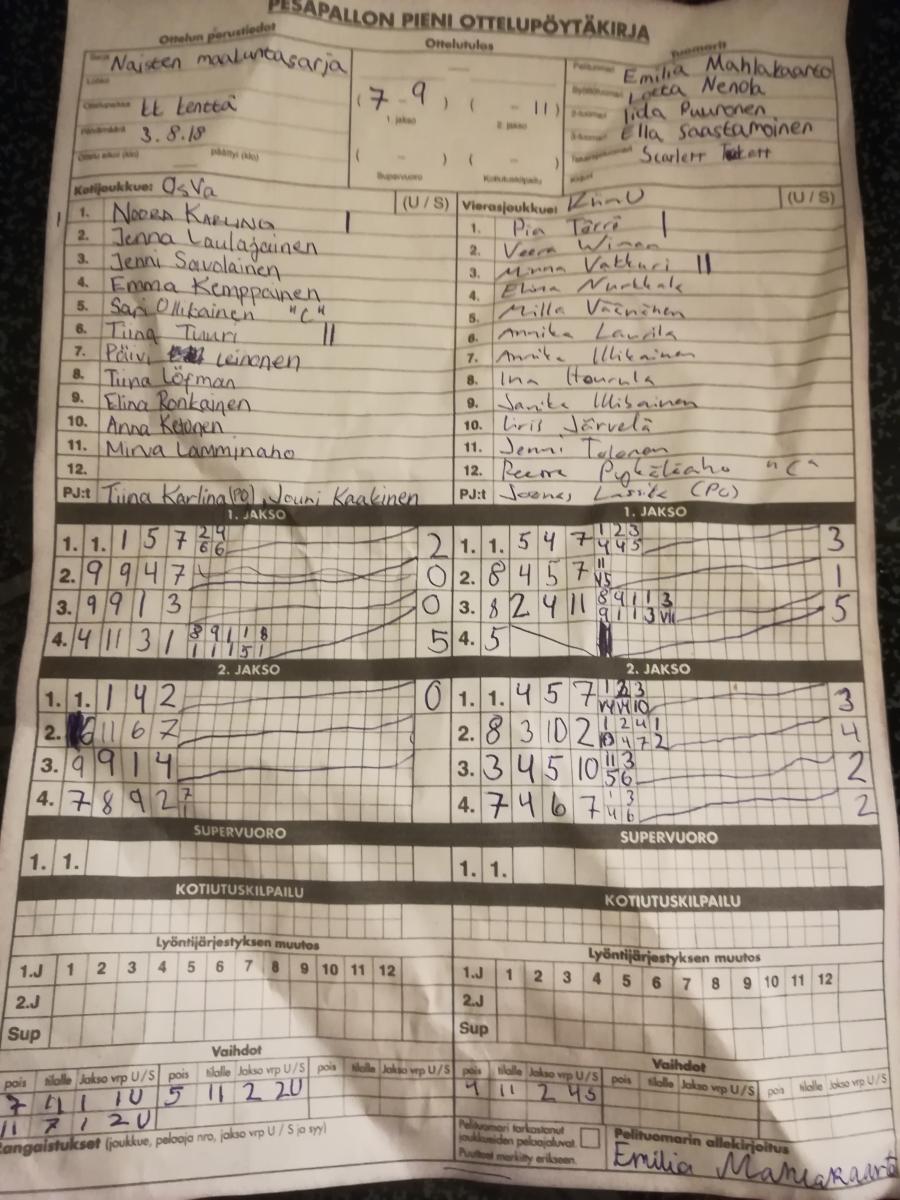 PESÄPALLON PIENI OTTELUPÖYTÄKIRJA
Ottelun perustiedot
Ottelutulos
Tuomarit
Naisten maakuntasarja
Ottelupaikka
tt kenttä
Päivämäärä
3.8.18
(7 - 9) ( - 11)
1. jakso 2. jakso
( - ) ( - )
Supervuoro Kotiutuskilpailu
Pelituomari
Emilia Mahlakaarto
Lotta Nenola
2-tuomari
Iida Puuronen
3-tuomari
Ella Saastamoinen
Scarlett
Kotijoukkue: OsVa (U / S)
1. NOORA KARLING
2. Jenna Laulajainen
3. Jenni Savolainen
4. Emma Kemppainen
5. Sari Ollikainen "C"
6. Tiina Tuuri
7. Päivi Leinonen
8. Tiina Löfman
9. Elina Ronkainen
10. Anna Ketonen
11. Mirva Lamminaho
12.
PJ:t Tiina Karlina (PG), Jouni Kaakinen
Vierasjoukkue: (U / S)
1. Pia
2. Veera
3. Minna Vakkuri
4. Elina
5. Milla Väänänen
6. Annika Laurila
7. Annika Illikainen
8. Ina Hourula
9. Janika Illikainen
10. Iiris Järvelä
11. Jenni Tolonen
12. Pykäläaho "C"
PJ:t Joonas Lassila (PG)
1. JAKSO
1. 1. 1 5 7 2 4 2
6 6
2. 9 9 4 7 0
3. 9 9 1 3 0
4. 4 11 3 1 8 9 1 1 8 5
1 1 1 5 1
1. JAKSO
1. 1. 5 4 7 1 2 3 3
4 4 5
2. 8 4 5 7 11 1
3. 8 2 4 11 8 9 1 1 3 5
9 1 1 3
4. 5
2. JAKSO
1. 1. 1 4 2 0
2. 6 11 6 7
3. 9 9 1 4
4. 7 8 9 2 7
1
2. JAKSO
1. 1. 4 5 7 3
2. 8 3 10 2 1 2 4 1 4
4 7 2
3. 3 4 5 10 11 3 2
5 6
4. 7 4 6 7 1 3 2
4 6
SUPERVUORO
1. 1.
SUPERVUORO
1. 1.
KOTIUTUSKILPAILU
KOTIUTUSKILPAILU
Lyöntijärjestyksen muutos
1.J 1 2 3 4 5 6 7 8 9 10 11 12
2.J
Sup
Lyöntijärjestyksen muutos
1.J 1 2 3 4 5 6 7 8 9 10 11 12
2.J
Sup
Vaihdot
pois tilalle Jakso vrp U / S pois tilalle Jakso vrp U / S pois tilalle Jakso vrp U / S
7 11 1 1U 5 11 2 2U
11 7 1 2U
Vaihdot
pois tilalle Jakso vrp U / S pois tilalle Jakso vrp U / S pois tilalle Jakso vrp U / S
4 11 2 4S
Rangaistukset (joukkue, pelaaja nro, jakso vrp U / S ja syy)
Pelituomari tarkastanut
joukkueiden pelaajaluvat.
Puutteet merkitty erikseen.
Pelituomarin allekirjoitus
Emilia Mahlakaarto